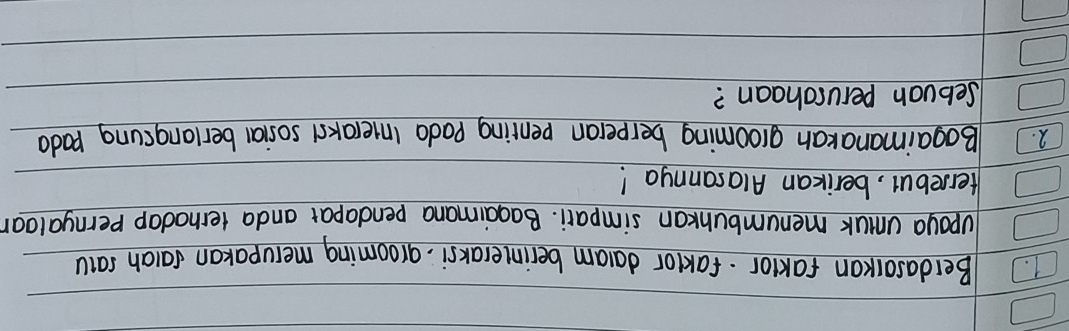 1. Berdasarkan faktor-faktor dalam berinteraksi, grooming merupakan salah satu
upaya untuk menumbuhkan simpati. Bagaimana pendapat anda terhadap Pernyataan
tersebut, berikan Alasannya !
2. Bagaimanakah grooming berperan penting Pada Interaksi sosial berlangsung pada
Sebuah perusahaan ?